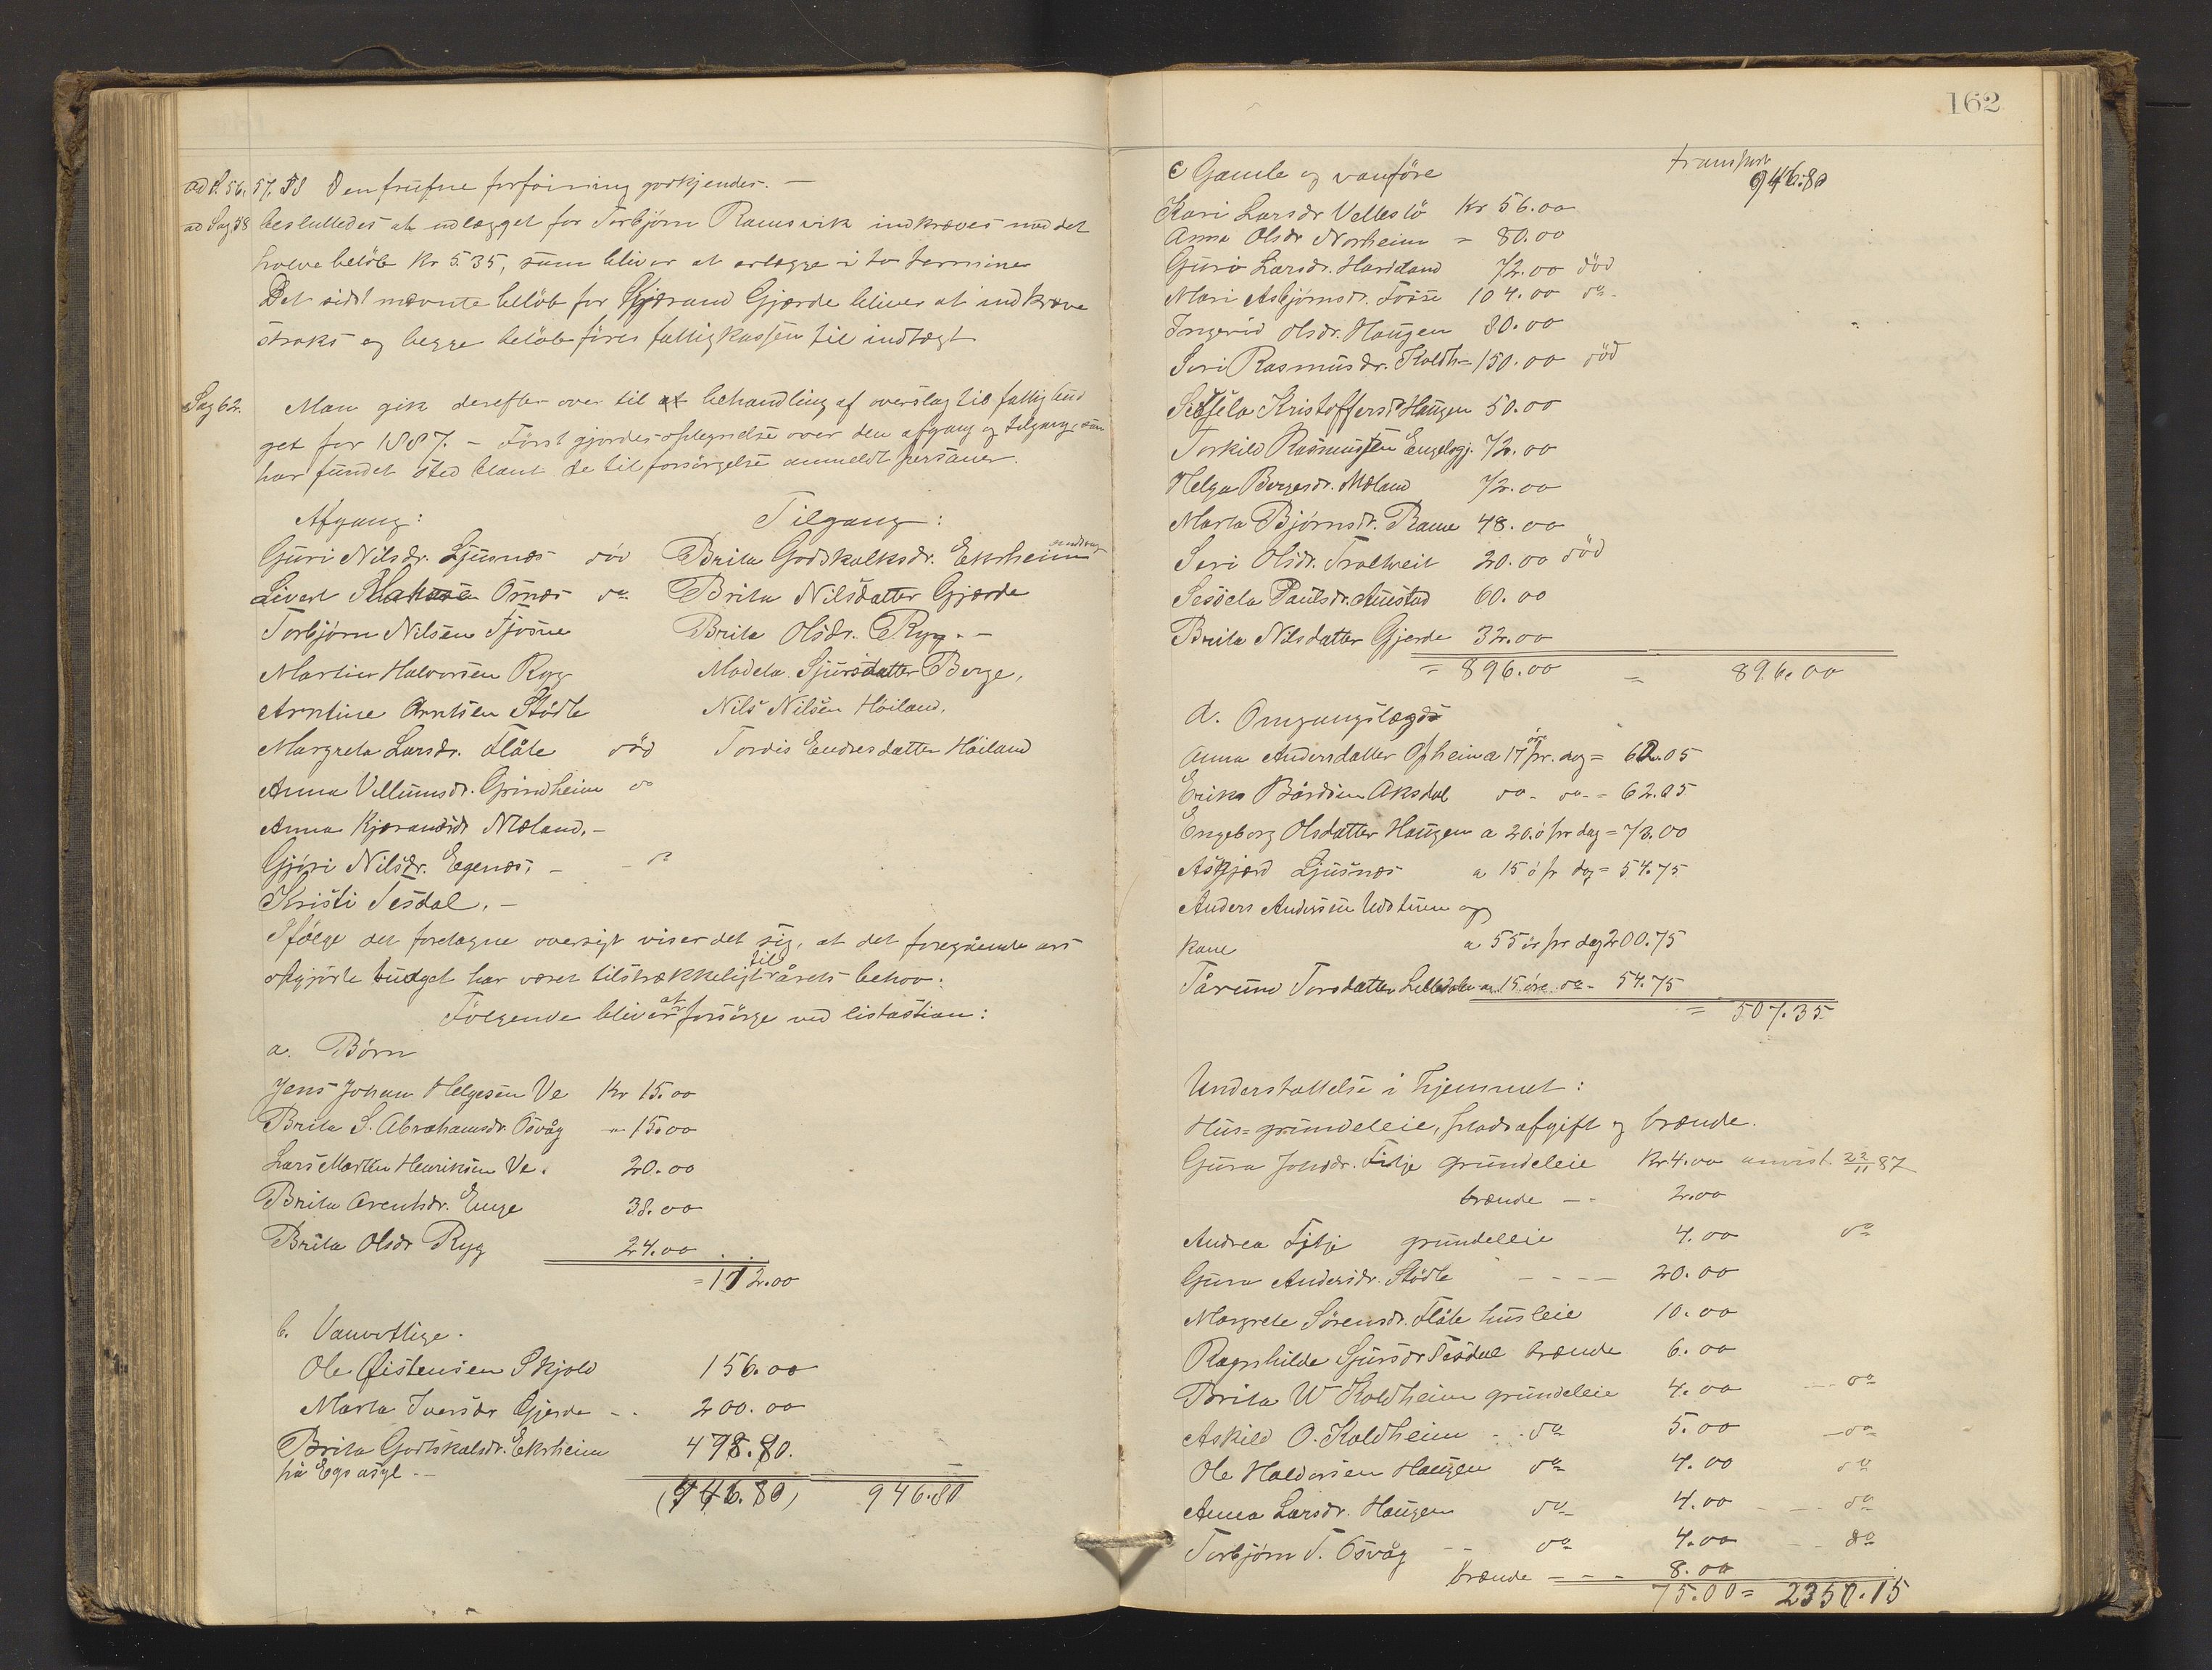 ad S. 56. 57. 58 Den trufne forføining godkjendes. —
ad Sag 58 besluttedes at udlægget for Torbjørn Ramsvik indkræves med det
halve beløb Kr 5.35, som bliver at erlægge i to terminer
Det sidst nævnte beløb for Gjærand Gjærde bliver at indkræve
straks og begge beløb føres fattigkassen til indtægt
Sag 62. Man gik derefter over til at behandling af overslag til fattigbud
get for 1887. – Først gjordes optegnelse over den afgang og tilgang, som
har fundet sted blant de til forsörgelse anmeldt personer.
Afgang: Tilgang:
Guri Nilsdr. Ljusnæs död Brita Godskalksdr. Ekrheim
Sivert Osnæs do Brita Nilsdatter Gjærde
Torbjørn Nilsen Fjösne Brita Olsdr. Ryg. –
Martin Halvorsen Ryg Madela Sjursdatter Berge,
Arntine Arntsen Stödle Nils Nilsen Höiland.
Margreta Larsdr. Flåte död Tordis Endresdatter Höiland
Anna Villumsdr. Grindheim do
Anna Kjærandsdr Mæland. –
Gjøri Nilsdr. Egenæs, – do
Kristi Tesdal. –
Ifölge det foretagne oversigt viser det sig, at det foregående års
opgjorte budget har været tilstrækkeligt til årets behov:
Fölgende bliver at forsörge ved lisitastion:
a. Börn
Jens Johan Helgesen Ve Kr 15.00
Brita S. Abrahamsdr. Osvåg " 15.00
Lars Martin Henriksen Ve. 20.00
Brita Arentsdr. Enge 38.00
Brita Olsdr Ryg 24.00
= 112.00
b. Vanvittige.
Ole Øistensen Skjold 156.00
Marta Iversdr Gjerde – . 200.00
Brita Godtskalsdr. Ekrheim 478.80.
på Egs asyl. –
(946.80) 946.80
162
c Gamle og vanföre transport
946.80
Kari Larsdr Vellestö Kr 56.00
Anna Olsdr Norheim = 80.00
Guri Larsdr. Harlland 72.00 död
Mari Asbjørnsdr. Fosse 104.00 do
Ingerid Olsdr. Haugen 80.00
Siri Rasmusdr. Koldh= 150.00 död
Sissela Kristoffersdr Haugen 50.00
Torkild Rasmussen Engelsgj. 72.00
Helga Børgesdr. Mæland 72.00
Marta Bjørnsdr. Rame 48.00
Siri Olsdr. Tveit 20.00 död
Sissela Paulsdr. Austad 60.00
Brita Nilsdatter Gjerde 32.00
= 896.00 = 896.00
d. Omgangslægd
Anna Andersdatter Opheim a 17 öre pr. dag = 62.05
Erika Bårdsen Aksdal do – do – = 62.05
Engeborg Olsdatter Haugen a 20 ö pr dag = 73.00
Askjærd Ljusnæs a 15 ö pr dag = 54.75
Anders Andersen og
kone a 55 ör pr dag 200.75
Tårunn Torsdatter Lilledalen a 15 öre do – 54.75
= 507.35
Understöttelse i hjemmet:
Hus=grundeleie, pladsafgift og brænde.
Gura Johsdr. Fitje grundeleie Kr. 4.00 anvist 22/11 87
brænde – – 2.00
Andrea Fitje grundeleie 4.00 do
Gura Andersdr. Stödle – – – – 20.00
Margrete Sörensdr. Flåte husleie 10.00
Ragnhilde Sjursdr Tesdal brænde 6.00
Brita W Koldheim grundeleie 4.00 – – do
Askild O. Koldheim – . do 5.00 – do
Ole Haldorsen Haugen do 4.00 do
Anna Larsdr. Haugen do 4.00 – – do
Torbjørn T. Osvåg – – do 4.00 – – do
brænde – – – 8.00
75.00 = 2350.15